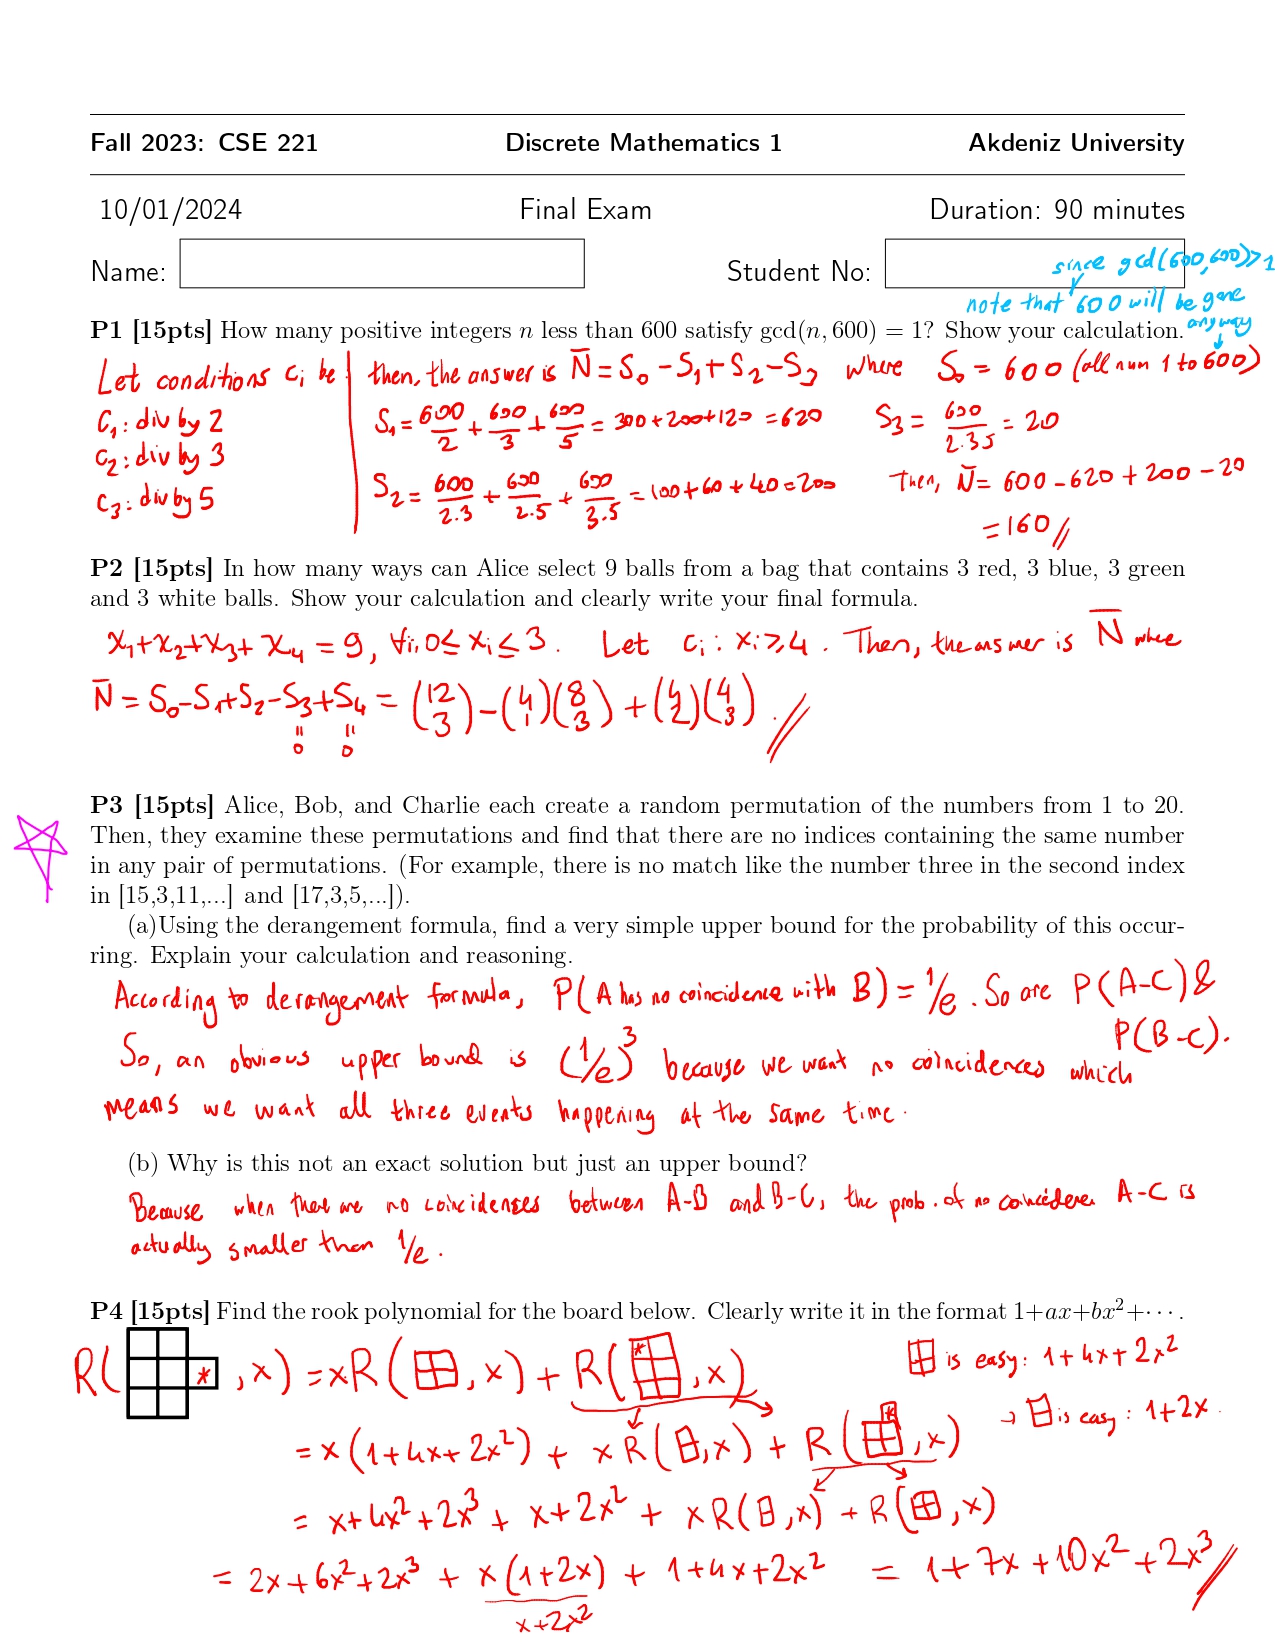 Fall 2023: CSE 221 Discrete Mathematics 1 Akdeniz University
10/01/2024 Final Exam Duration: 90 minutes
Name: Student No:
since gcd(600,600)>1
note that 600 will be gone
anyway
P1 [15pts] How many positive integers n less than 600 satisfy gcd(n, 600) = 1? Show your calculation.
Let conditions ci be
C1: div by 2
C2: div by 3
C3: div by 5
then, the answer is N̅ = S0 - S1 + S2 - S3 where S0 = 600 (all num 1 to 600)
S1 = 600/2 + 600/3 + 600/5 = 300+200+120 = 620 S3 = 600/2.3.5 = 20
S2 = 600/2.3 + 600/2.5 + 600/3.5 = 100+60+40=200 Then, N̅ = 600 - 620 + 200 - 20
= 160 //
P2 [15pts] In how many ways can Alice select 9 balls from a bag that contains 3 red, 3 blue, 3 green
and 3 white balls. Show your calculation and clearly write your final formula.
x1+x2+x3+x4 = 9, ∀i, 0≤ xi ≤ 3. Let ci : xi ≥ 4. Then, the answer is N̅ where
N̅ = S0-S1+S2-S3+S4 = (12 3) - (4 1)(8 3) + (4 2)(4 3) . //
" "
0 0
P3 [15pts] Alice, Bob, and Charlie each create a random permutation of the numbers from 1 to 20.
Then, they examine these permutations and find that there are no indices containing the same number
in any pair of permutations. (For example, there is no match like the number three in the second index
in [15,3,11,...] and [17,3,5,...]).
(a)Using the derangement formula, find a very simple upper bound for the probability of this occur-
ring. Explain your calculation and reasoning.
According to derangement formula, P(A has no coincidence with B) = 1/e. So are P(A-C) &
P(B-C).
So, an obvious upper bound is (1/e)^3 because we want no coincidences which
means we want all three events happening at the same time.
(b) Why is this not an exact solution but just an upper bound?
Because when there are no coincidenses between A-B and B-C, the prob. of no coincidence A-C is
actually smaller than 1/e.
P4 [15pts] Find the rook polynomial for the board below. Clearly write it in the format 1+ax+bx²+⋯.
R( * , x) = xR( , x) + R( * , x) is easy: 1+4x+2x²
= x(1+4x+2x²) + xR( , x) + R( * , x) → is easy: 1+2x.
= x+4x²+2x³ + x+2x² + xR( , x) + R( , x)
= 2x+6x²+2x³ + x(1+2x) + 1+4x+2x² = 1+7x+10x²+2x³ //
x+2x²